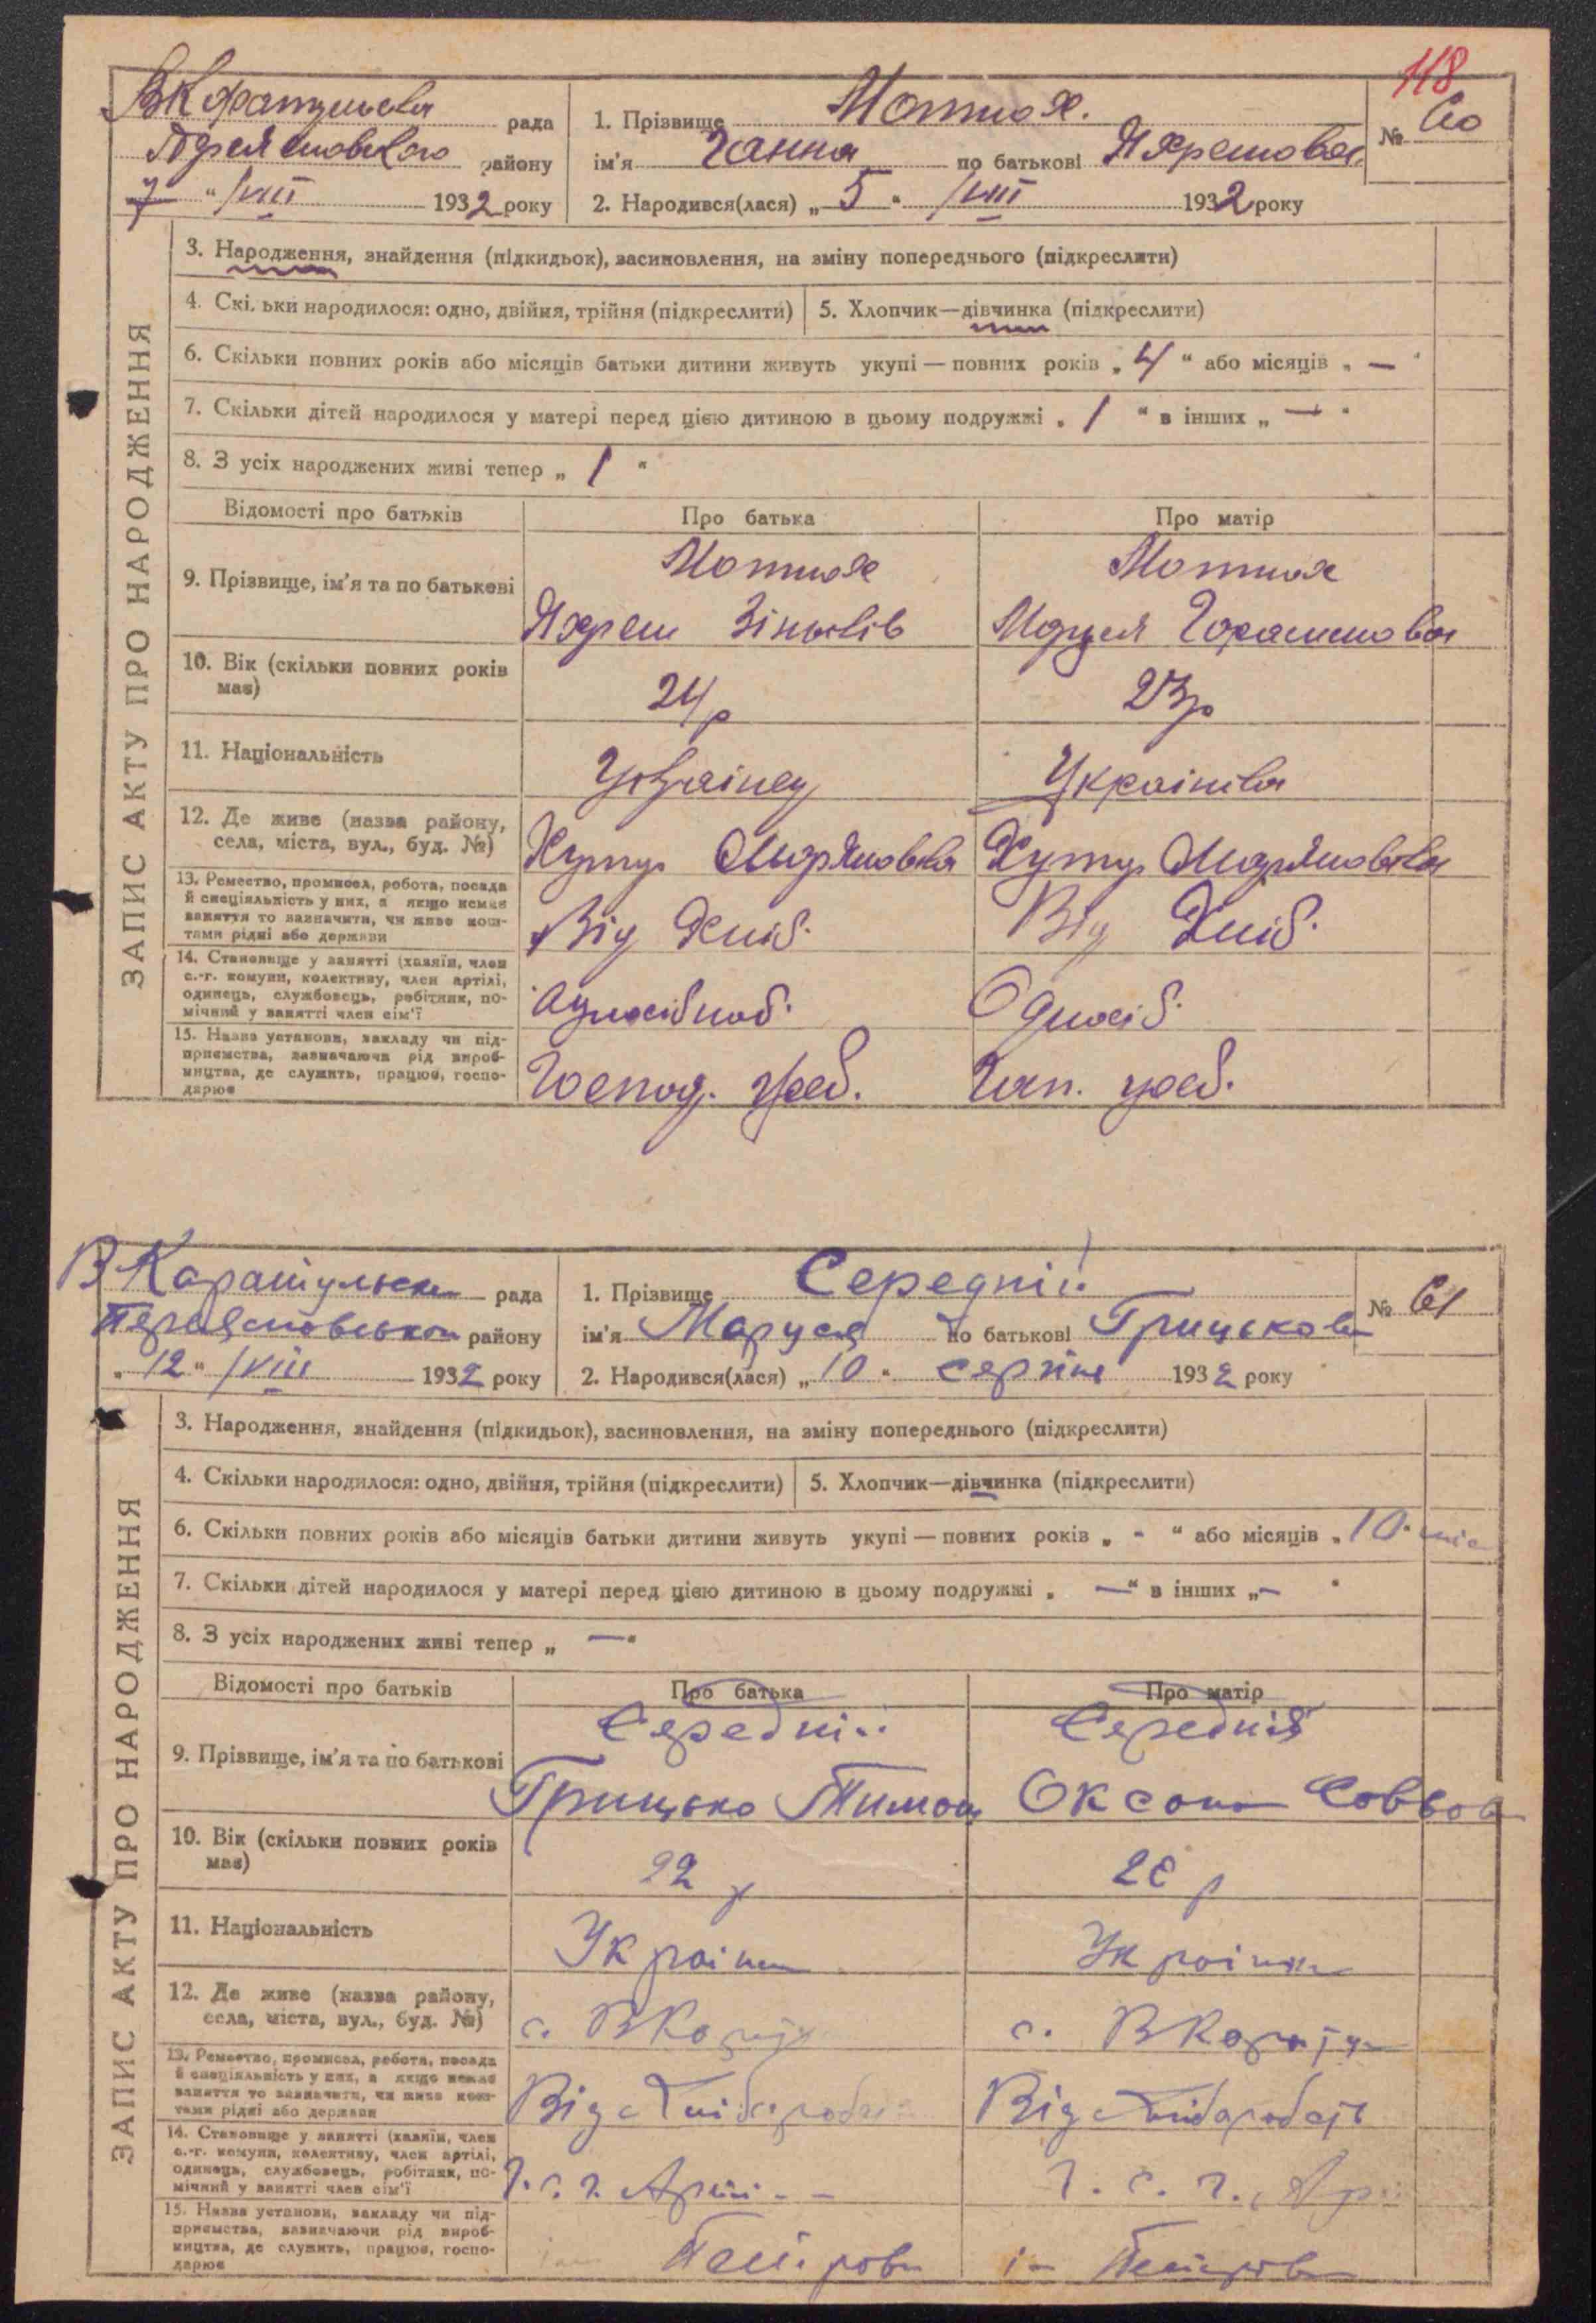 118
ВКаратульська рада
Переяславського району
7 " /VIII 1932 року
1. Прізвище Мотнюх. № 60
ім'я Ганна по батькові Яхремова
2. Народився(лася) „ 5 " /VIII 1932 року
ЗАПИС АКТУ ПРО НАРОДЖЕННЯ
3. Народження, знайдення (підкидьок), засиновлення, на зміну попереднього (підкреслити)
4. Скі. ьки народилося: одно, двійня, трійня (підкреслити) 5. Хлопчик—дівчинка (підкреслити)
6. Скільки повних років або місяців батьки дитини живуть укупі — повних років „ 4 " або місяців „ — "
7. Скільки дітей народилося у матері перед цією дитиною в цьому подружжі „ 1 " в інших „ — "
8. З усіх народжених живі тепер „ 1 "
Відомості про батьків Про батька Про матір
9. Прізвище, ім'я та по батькові Мотнюх Мотнюх
Яхрем Зіньків Маруся Горасимова
10. Вік (скільки повних років має) 24р 23р
11. Національність Українец Українка
12. Де живе (назва району, села, міста, вул., буд. №) Хутур Хутур
13. Ремество, промисел, робота, посада й спеціяльність у них, а якщо немає заняття то зазначити, чи живе коштами рідні або держави Від Хліб. Від Хліб.
14. Становище у занятті (хазяїн, член с.-г. комуни, колективу, член артілі, одинець, службовець, робітник, помічний у занятті член сім'ї Односіб.
15. Назва установи, закладу чи підприємства, зазначаючи рід виробництва, де служить, працює, господарює Господ.
В Каратульська рада
Переяславського району
„ 12 " /VIII 1932 року
1. Прізвище Середній № 61
ім'я Маруся по батькові Грицькова
2. Народився(лася) „ 10 " серпня 1932 року
ЗАПИС АКТУ ПРО НАРОДЖЕННЯ
3. Народження, знайдення (підкидьок), засиновлення, на зміну попереднього (підкреслити)
4. Скільки народилося: одно, двійня, трійня (підкреслити) 5. Хлопчик—дівчинка (підкреслити)
6. Скільки повних років або місяців батьки дитини живуть укупі — повних років „ - " або місяців „ 10 міс
7. Скільки дітей народилося у матері перед цією дитиною в цьому подружжі „ — " в інших „ — "
8. З усіх народжених живі тепер „ — "
Відомості про батьків Про батька Про матір
9. Прізвище, ім'я та по батькові Середній Середня
Грицько Тимош Оксана Соввова
10. Вік (скільки повних років має) 22 р р
11. Національність Українец Українка
12. Де живе (назва району, села, міста, вул., буд. №) с. ВКарату с. ВКарату
13. Ремество, промисел, робота, посада й спеціяльність у них, а якщо немає заняття то зазначити, чи живе коштами рідні або держави Від Хлібороб Від Хлібороб
14. Становище у занятті (хазяїн, член с.-г. комуни, колективу, член артілі, одинець, службовець, робітник, помічний у занятті член сім'ї Ч. с. г. Арті Ч. с. г. Ар
15. Назва установи, закладу чи підприємства, зазначаючи рід виробництва, де служить, працює, господарює Петровс Петровс